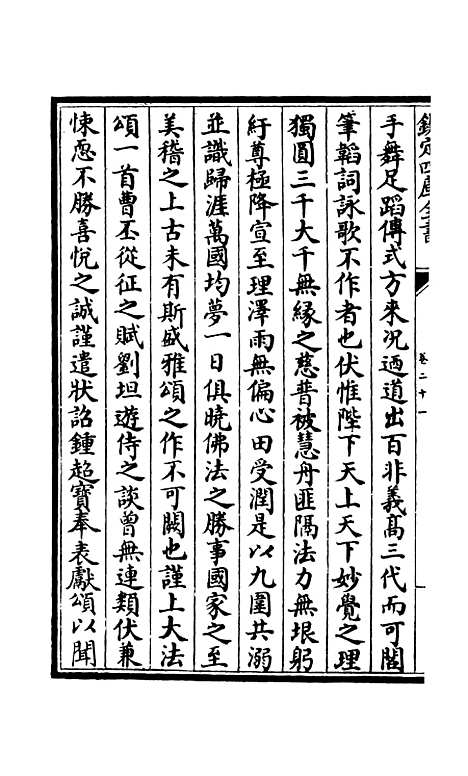 欽定四庫全書
卷二十一
手舞足蹈傳式方來況迺道出百非義髙三代而可闕
筆韜詞詠歌不作者也伏惟陛下天上天下妙覺之理
獨圓三千大千無緣之慈普被慧舟匪隔法力無垠躬
紆尊極降宣至理澤雨無偏心田受潤是以九圍共溺
並識歸涯萬國均夢一日俱曉佛法之勝事國家之至
美稽之上古未有斯盛雅頌之作不可闕也謹上大法
頌一首曹丕從征之賦劉坦遊侍之談曽無連類伏兼
悚恧不勝喜悅之誠謹遣狀詔鍾超寶奉表獻頌以聞